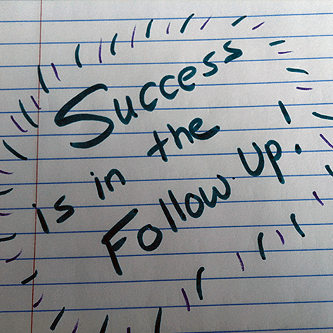 Success
is in the
Follow Up.